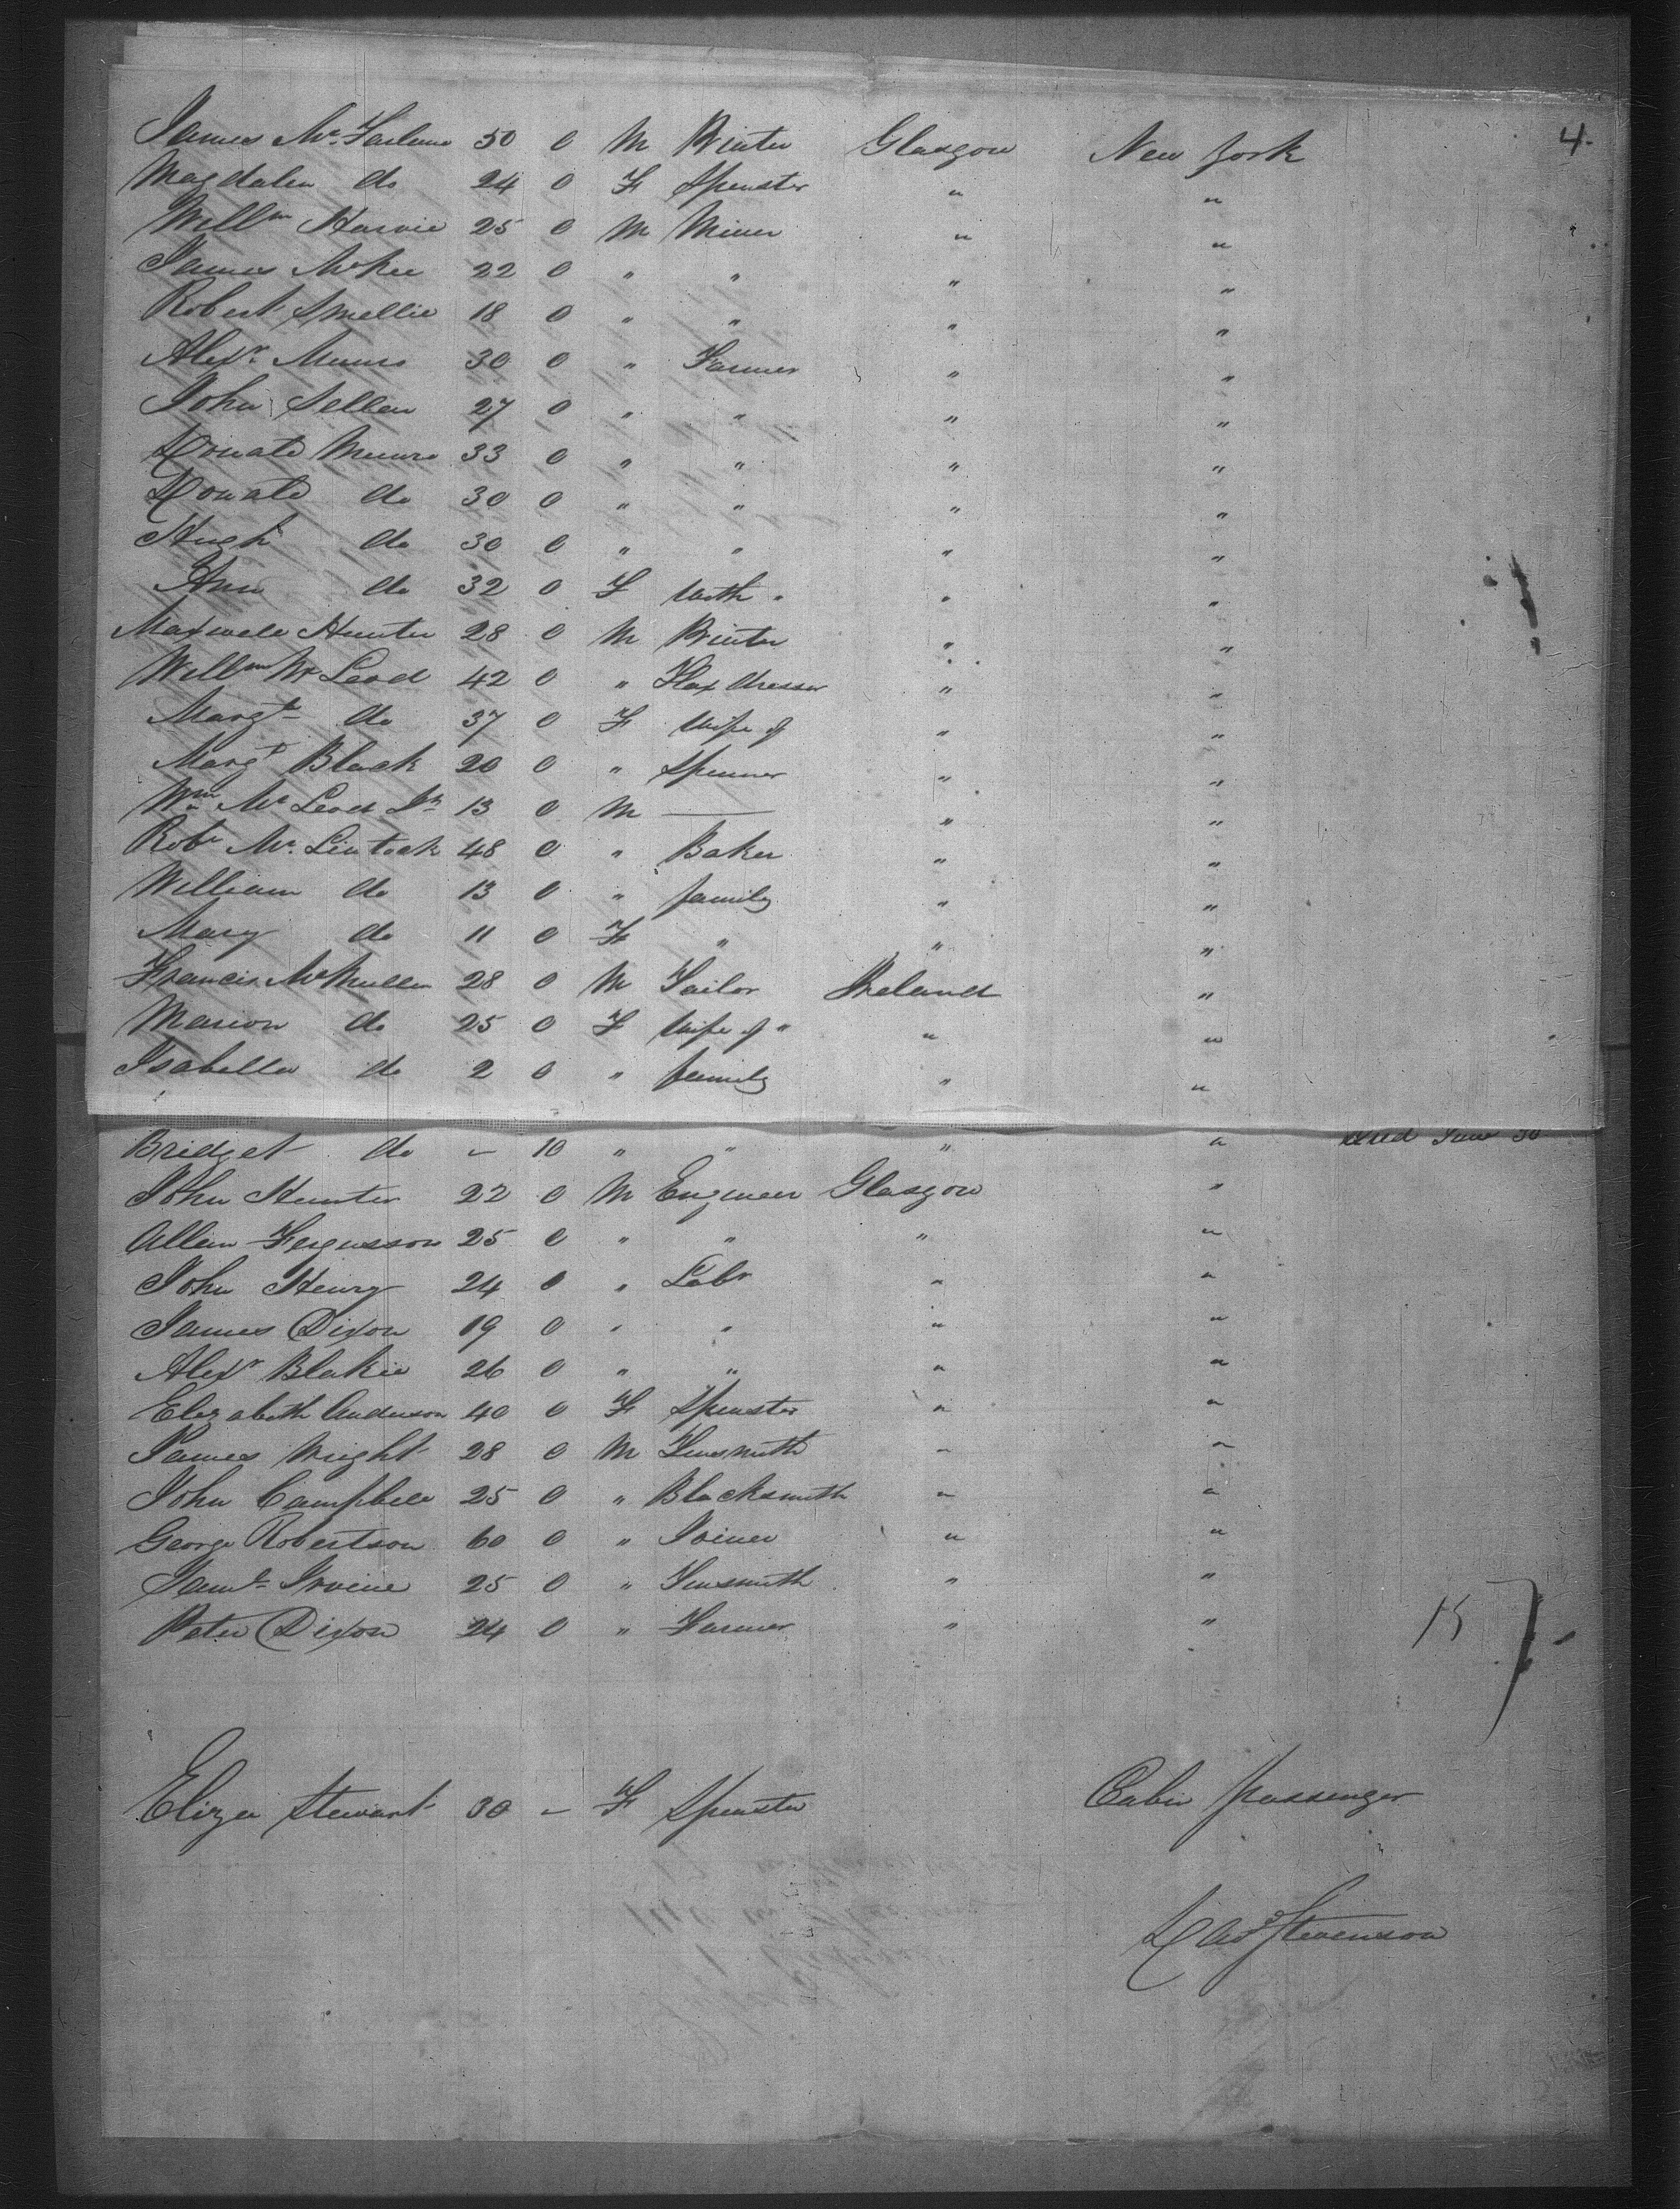 4.
James McFarlane 50 0 M Printer Glasgow New York
Magdalen do 24 0 F Spinster " "
Willm Harvie 25 0 M Miner " "
James McKee 22 0 " " " "
Robert Smellie 18 0 " " " "
Alexr Munro 30 0 " Farmer " "
John Sellar 27 0 " " " "
Donald Munro 33 0 " " " "
Donald do 30 0 " " " "
Hugh do 30 0 " " " "
Ann do 32 0 F With " " "
Maxwell Hunter 28 0 M Printer " "
Willm McLeod 42 0 " Flax dresser " "
Margt do 37 0 F Wife of " "
Margt Black 20 0 " Spinner " "
Wm McLeod Jr 13 0 M — " "
Robt McLintock 48 0 " Baker " "
William do 13 0 " family " "
Mary do 11 0 F " " "
Francis McMullen 28 0 M Tailor Ireland "
Marion do 25 0 F Wife of " " "
Isabella do 2 0 " family " "
Bridget do – 10 " " " " died June 30
John Hunter 22 0 M Engineer Glasgow "
Allan Fergusson 25 0 " " " "
John Henry 24 0 " Labr " "
James Dixon 19 0 " " " "
Alexr Blakie 26 0 " " " "
Elizabeth Anderson 40 0 F Spinster " "
James Wright 28 0 M Tinsmith " "
John Campbell 25 0 " Blacksmith " "
George Robertson 60 0 " Joiner " "
Saml Irvine 25 0 " Tinsmith " "
Peter Dixon 24 0 " Farmer " " 15
Eliza Stewart 30 – F Spinster Cabin Passenger
Stevenson